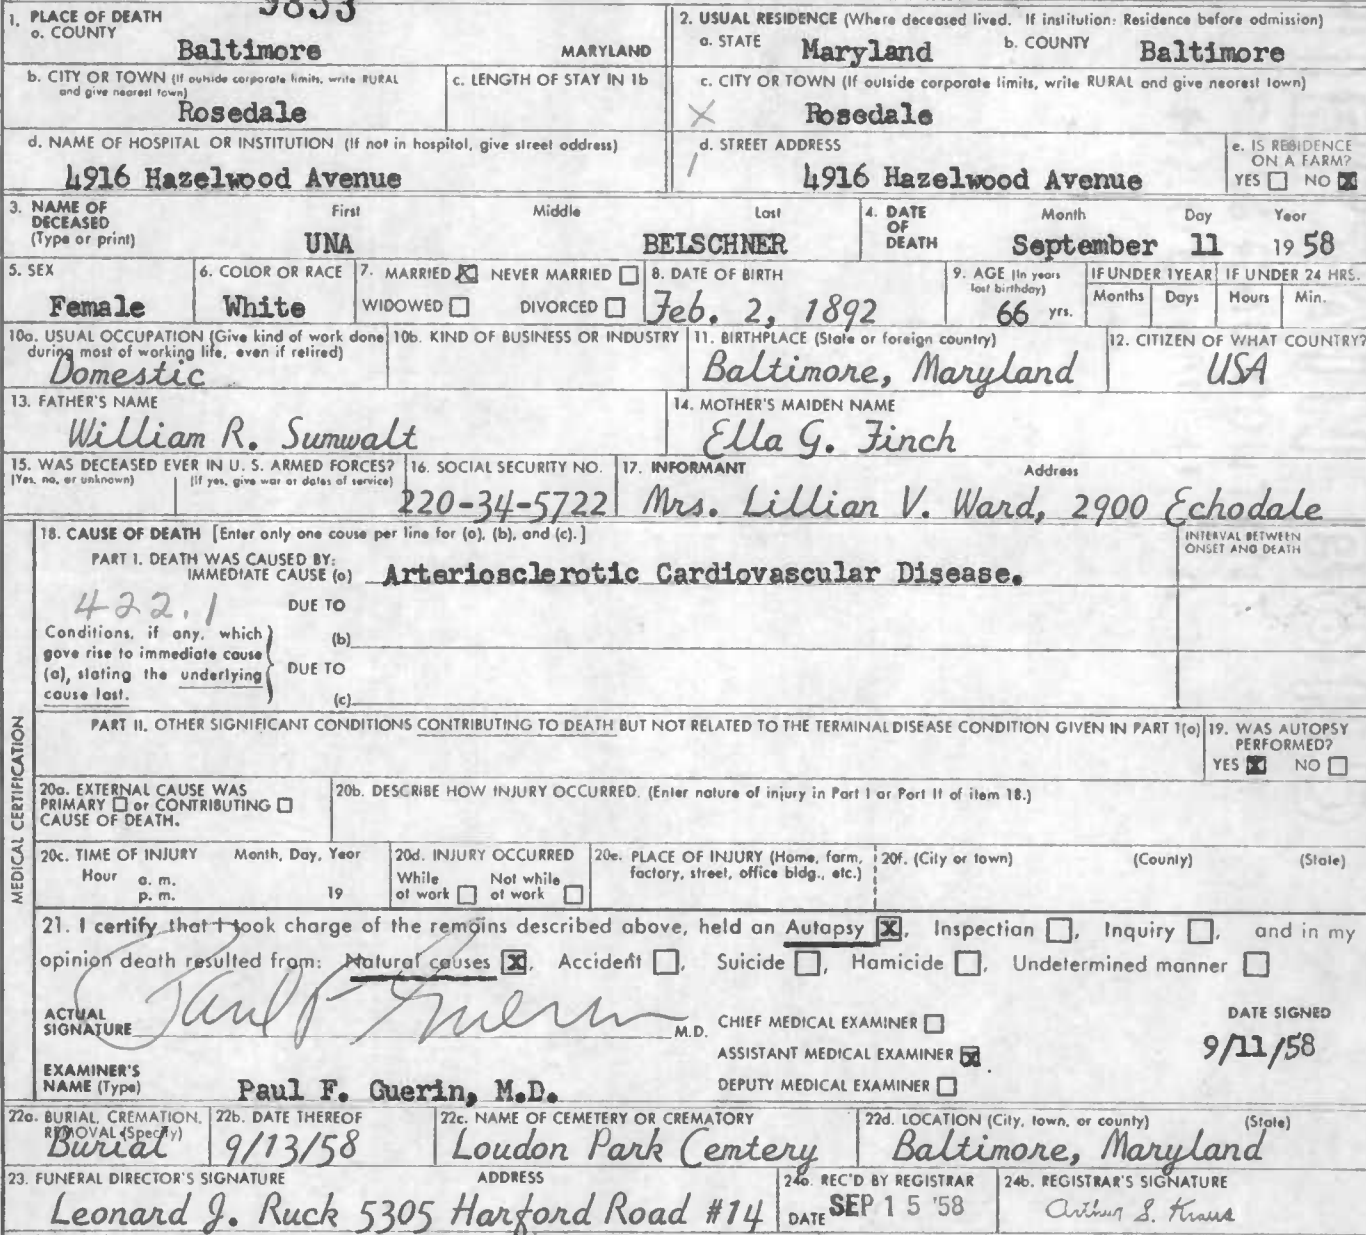 9853
1. PLACE OF DEATH
a. COUNTY
Baltimore MARYLAND
2. USUAL RESIDENCE (Where deceased lived. If institution: Residence before admission)
a. STATE Maryland b. COUNTY Baltimore
b. CITY OR TOWN (If outside corporate limits, write RURAL and give nearest town)
Rosedale
c. LENGTH OF STAY IN 1b
c. CITY OR TOWN (If outside corporate limits, write RURAL and give nearest town)
Rosedale
d. NAME OF HOSPITAL OR INSTITUTION (If not in hospital, give street address)
4916 Hazelwood Avenue
d. STREET ADDRESS
4916 Hazelwood Avenue
e. IS RESIDENCE ON A FARM?
YES NO X
3. NAME OF DECEASED (Type or print)
First Middle Last
UNA BELSCHNER
4. DATE OF DEATH
Month Day Year
September 11 1958
5. SEX
Female
6. COLOR OR RACE
White
7. MARRIED X NEVER MARRIED
WIDOWED DIVORCED
8. DATE OF BIRTH
Feb. 2, 1892
9. AGE (In years last birthday)
66 yrs.
IF UNDER 1 YEAR
Months Days
IF UNDER 24 HRS.
Hours Min.
10a. USUAL OCCUPATION (Give kind of work done during most of working life, even if retired)
Domestic
10b. KIND OF BUSINESS OR INDUSTRY
11. BIRTHPLACE (State or foreign country)
Baltimore, Maryland
12. CITIZEN OF WHAT COUNTRY?
USA
13. FATHER'S NAME
William R. Sumwalt
14. MOTHER'S MAIDEN NAME
Ella G. Finch
15. WAS DECEASED EVER IN U. S. ARMED FORCES?
(Yes, no, or unknown) (If yes, give war or dates of service)
16. SOCIAL SECURITY NO.
220-34-5722
17. INFORMANT Address
Mrs. Lillian V. Ward, 2900 Echodale
MEDICAL CERTIFICATION
18. CAUSE OF DEATH [Enter only one cause per line for (a), (b), and (c).]
INTERVAL BETWEEN ONSET AND DEATH
PART I. DEATH WAS CAUSED BY:
IMMEDIATE CAUSE (a) Arteriosclerotic Cardiovascular Disease.
422.1
DUE TO
Conditions, if any, which gave rise to immediate cause (a), stating the underlying cause last.
(b)
DUE TO
(c)
PART II. OTHER SIGNIFICANT CONDITIONS CONTRIBUTING TO DEATH BUT NOT RELATED TO THE TERMINAL DISEASE CONDITION GIVEN IN PART 1(a)
19. WAS AUTOPSY PERFORMED?
YES X NO
20a. EXTERNAL CAUSE WAS PRIMARY or CONTRIBUTING CAUSE OF DEATH.
20b. DESCRIBE HOW INJURY OCCURRED. (Enter nature of injury in Part I or Part II of item 18.)
20c. TIME OF INJURY Month, Day, Year
Hour a. m.
p. m. 19
20d. INJURY OCCURRED
While at work Not while at work
20e. PLACE OF INJURY (Home, farm, factory, street, office bldg., etc.)
20f. (City or town) (County) (State)
21. I certify that I took charge of the remains described above, held an Autopsy X, Inspection , Inquiry , and in my
opinion death resulted from: Natural causes X, Accident , Suicide , Homicide , Undetermined manner
ACTUAL SIGNATURE Paul F. Guerin M.D.
CHIEF MEDICAL EXAMINER
ASSISTANT MEDICAL EXAMINER X
DEPUTY MEDICAL EXAMINER
DATE SIGNED
9/11/58
EXAMINER'S NAME (Type) Paul F. Guerin, M.D.
22a. BURIAL, CREMATION, REMOVAL (Specify)
Burial
22b. DATE THEREOF
9/13/58
22c. NAME OF CEMETERY OR CREMATORY
Loudon Park Cemtery
22d. LOCATION (City, town, or county) (State)
Baltimore, Maryland
23. FUNERAL DIRECTOR'S SIGNATURE ADDRESS
Leonard J. Ruck 5305 Harford Road #14
24a. REC'D BY REGISTRAR
DATE SEP 15 '58
24b. REGISTRAR'S SIGNATURE
Arthur S. Kraus